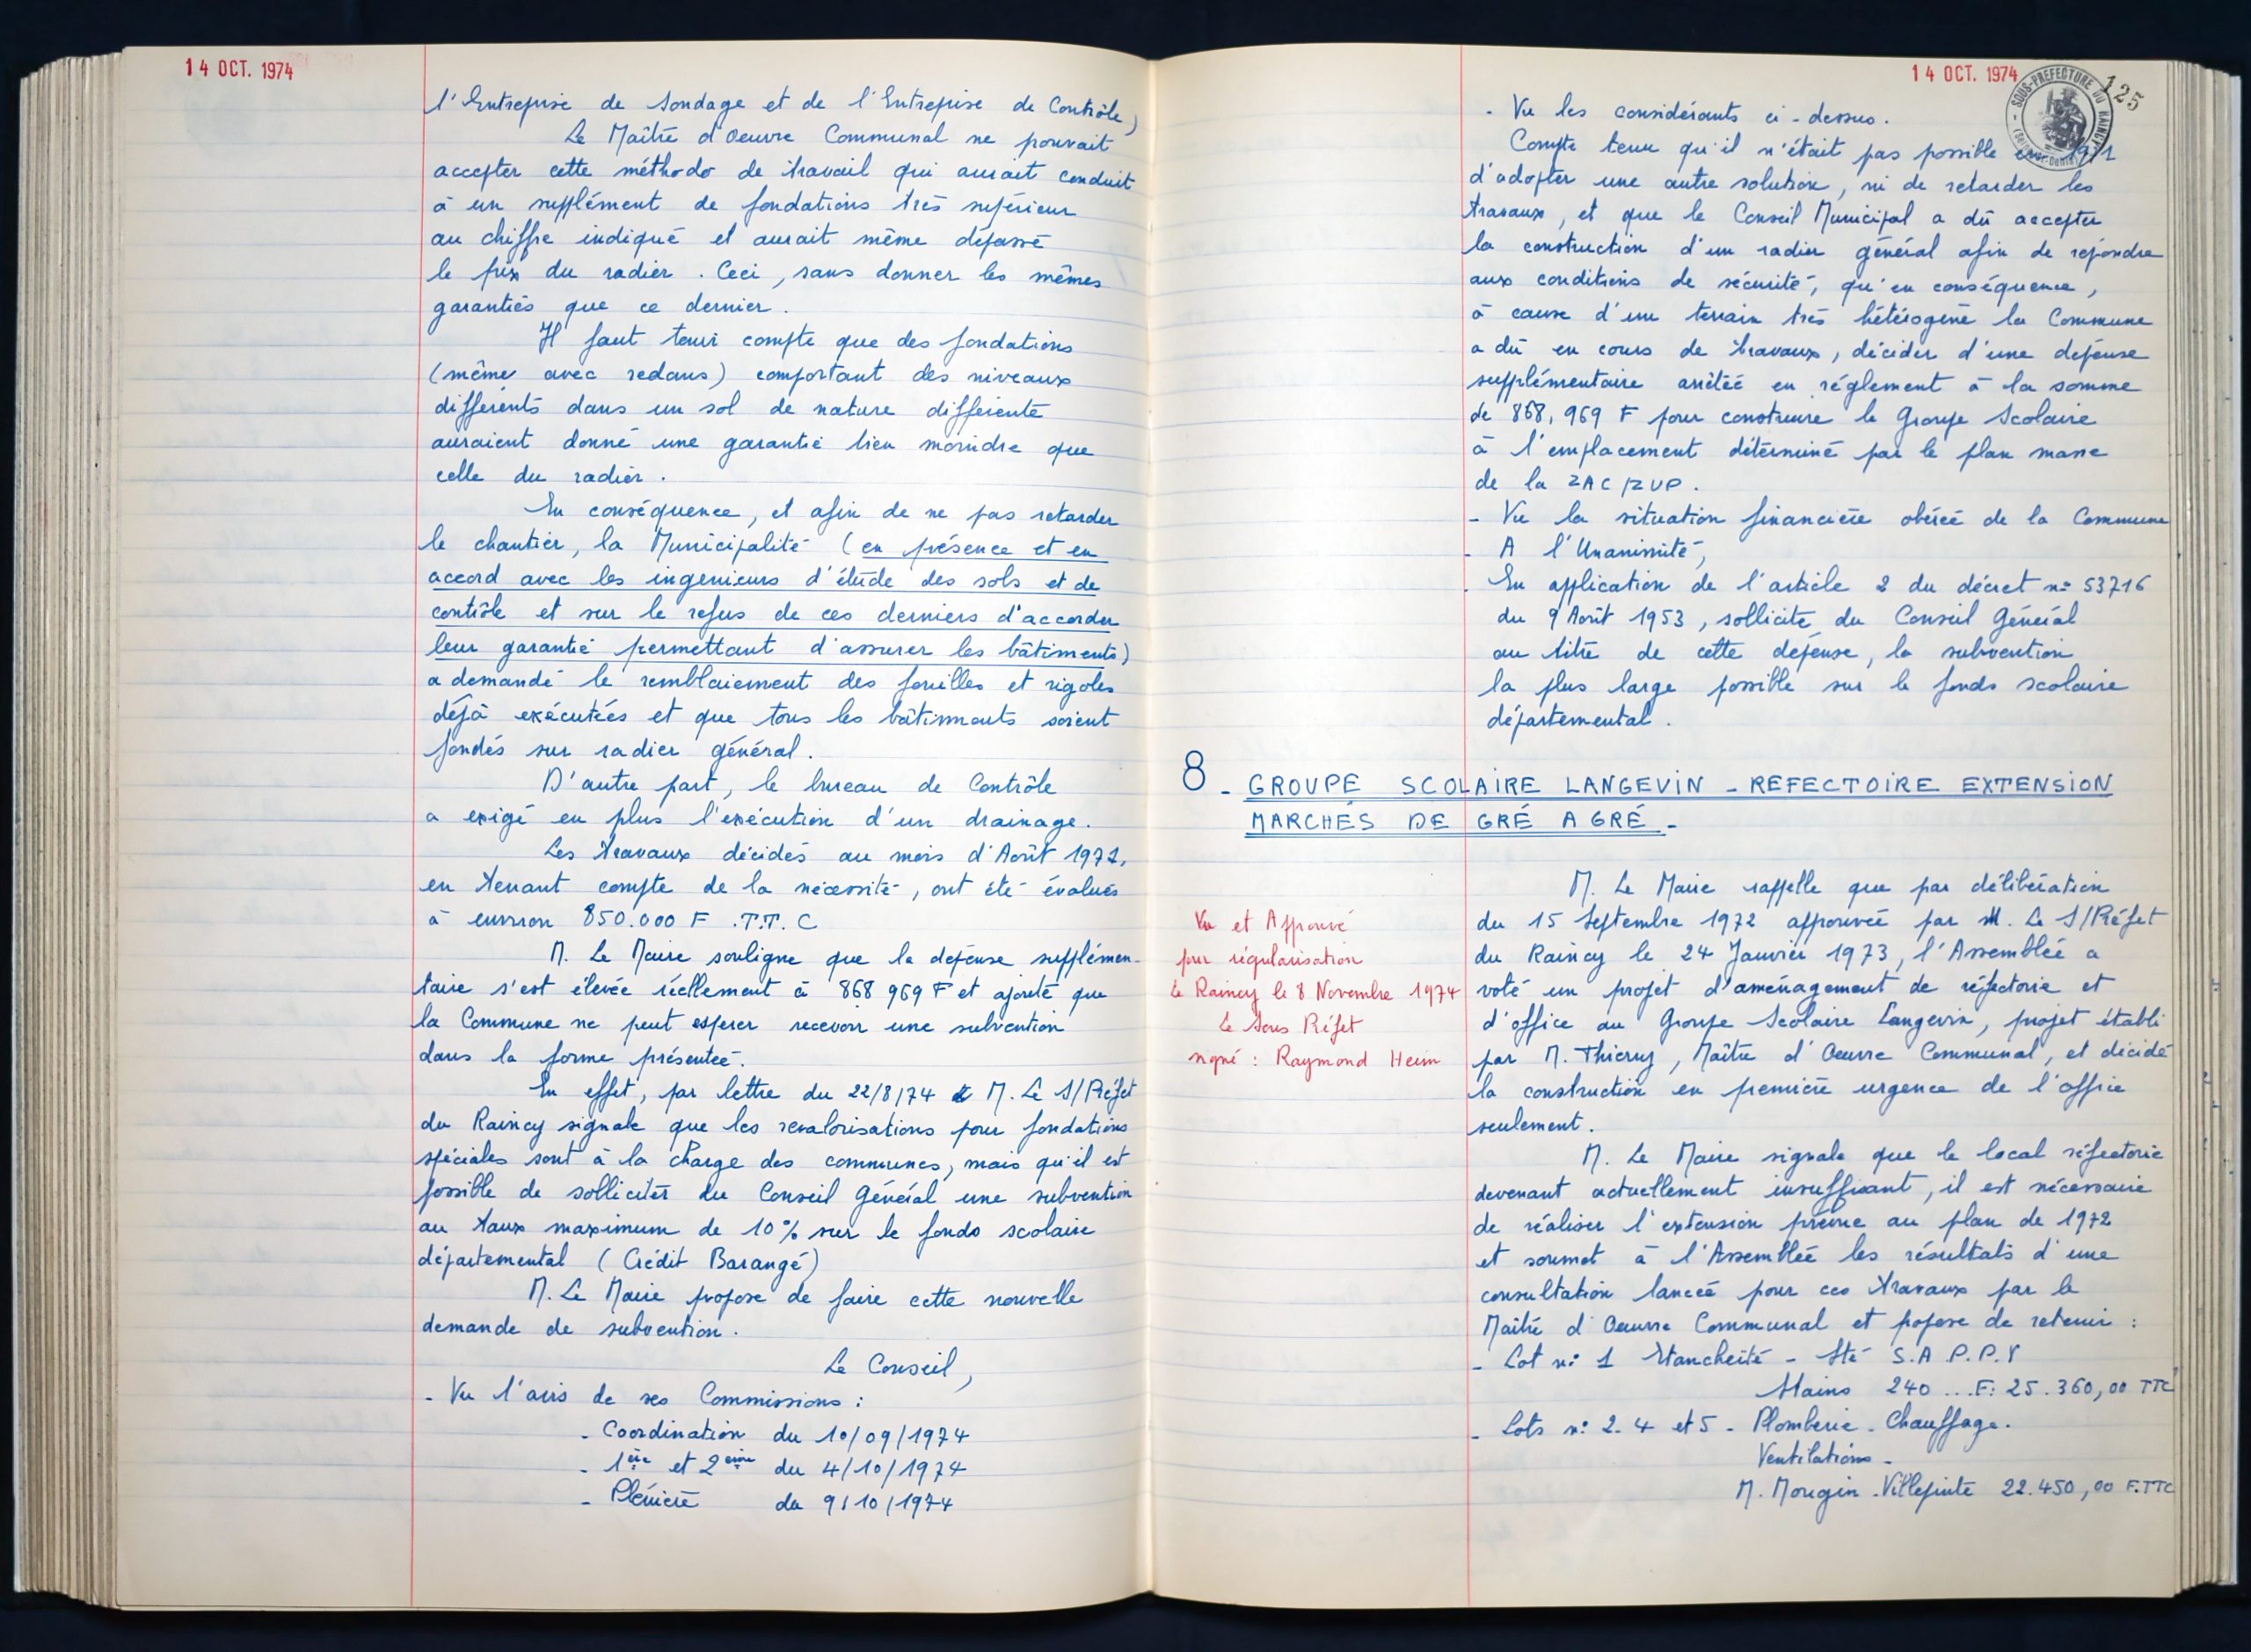 14 OCT. 1974
l'Entreprise de Sondage et de l'Entreprise de Contrôle)
Le Maître d'Oeuvre Communal ne pouvait
accepter cette méthode de travail qui aurait conduit
à un supplément de fondations très supérieur
au chiffre indiqué et aurait même dépassé
le prix du radier. Ceci, sans donner les mêmes
garanties que ce dernier.
Il faut tenir compte que des fondations
(même avec redans) comportant des niveaux
différents dans un sol de nature différente
auraient donné une garantie bien moindre que
celle du radier.
En conséquence, et afin de ne pas retarder
le chantier, la Municipalité (en présence et en
accord avec les ingenieurs d'étude des sols et de
contrôle et sur le refus de ces derniers d'accorder
leur garantie permettant d'assurer les bâtiments)
a demandé le remblaiement des fouilles et rigoles
déjà exécutées et que tous les bâtiments soient
fondés sur radier général.
D'autre part, le bureau de Contrôle
a exigé en plus l'exécution d'un drainage.
Les travaux décidés au mois d'Août 1971,
en tenant compte de la nécessité, ont été évalués
à environ 850.000 F .T.T.C
M. Le Maire souligne que la dépense supplémen-
taire s'est élevée réellement à 868 969 F et ajoute que
la Commune ne peut esperer recevoir une subvention
dans la forme présentée.
En effet, par lettre du 22/8/74 M. Le S/Préfet
du Raincy signale que les revalorisations pour fondations
spéciales sont à la charge des communes, mais qu'il est
possible de solliciter du Conseil Général une subvention
au taux maximum de 10% sur le fonds scolaire
départemental (Crédit Barangé)
M. Le Maire propose de faire cette nouvelle
demande de subvention.
Le Conseil,
- Vu l'avis de ses Commissions :
- Coordination du 10/09/1974
- 1ère et 2ème du 4/10/1974
- Plénière du 9/10/1974
14 OCT. 1974
SOUS-PREFECTURE DU RAINCY
125
- Vu les considérants ci-dessus.
Compte tenu qu'il n'était pas possible en 1971
d'adopter une autre solution, ni de retarder les
travaux, et que le Conseil Municipal a dû accepter
la construction d'un radier général afin de répondre
aux conditions de sécurité, qu'en conséquence,
à cause d'un terrain très hétérogène la Commune
a dû en cours de travaux, décider d'une dépense
supplémentaire arrêtée en réglement à la somme
de 868,969 F pour construire le Groupe Scolaire
à l'emplacement déterminé par le plan masse
de la ZAC/ZUP.
- Vu la situation financière obérée de la Commune
- A l'Unanimité,
- En application de l'article 2 du décret n° 53716
du 9 Août 1953, sollicite du Conseil Général
au titre de cette dépense, la subvention
la plus large possible sur le fonds scolaire
départemental.
8 - GROUPE SCOLAIRE LANGEVIN - REFECTOIRE EXTENSION
MARCHÉS DE GRÉ A GRÉ -
M. Le Maire rappelle que par délibération
du 15 Septembre 1972 approuvée par M. Le S/Préfet
du Raincy le 24 Janvier 1973, l'Assemblée a
voté un projet d'aménagement de réfectoire et
d'office au Groupe Scolaire Langevin, projet établi
par M. Thierry, Maître d'Oeuvre Communal, et décidé
la construction en première urgence de l'office
seulement.
Vu et Approuvé
pour régularisation
Le Raincy le 8 Novembre 1974
Le Sous Préfet
signé : Raymond Heim
M. Le Maire signale que le local réfectoire
devenant actuellement insuffisant, il est nécessaire
de réaliser l'extension prévue au plan de 1972
et soumet à l'Assemblée les résultats d'une
consultation lancée pour ces travaux par le
Maître d'Oeuvre Communal et propose de retenir :
- Lot n° 1 Etancheité - Sté S.A.P.P.V
Stains 240 ... F: 25.360,00 TTC
- Lots n° 2. 4 et 5 - Plomberie - Chauffage.
Ventilations -
M. Mougin - Villepinte 22.450,00 F.TTC